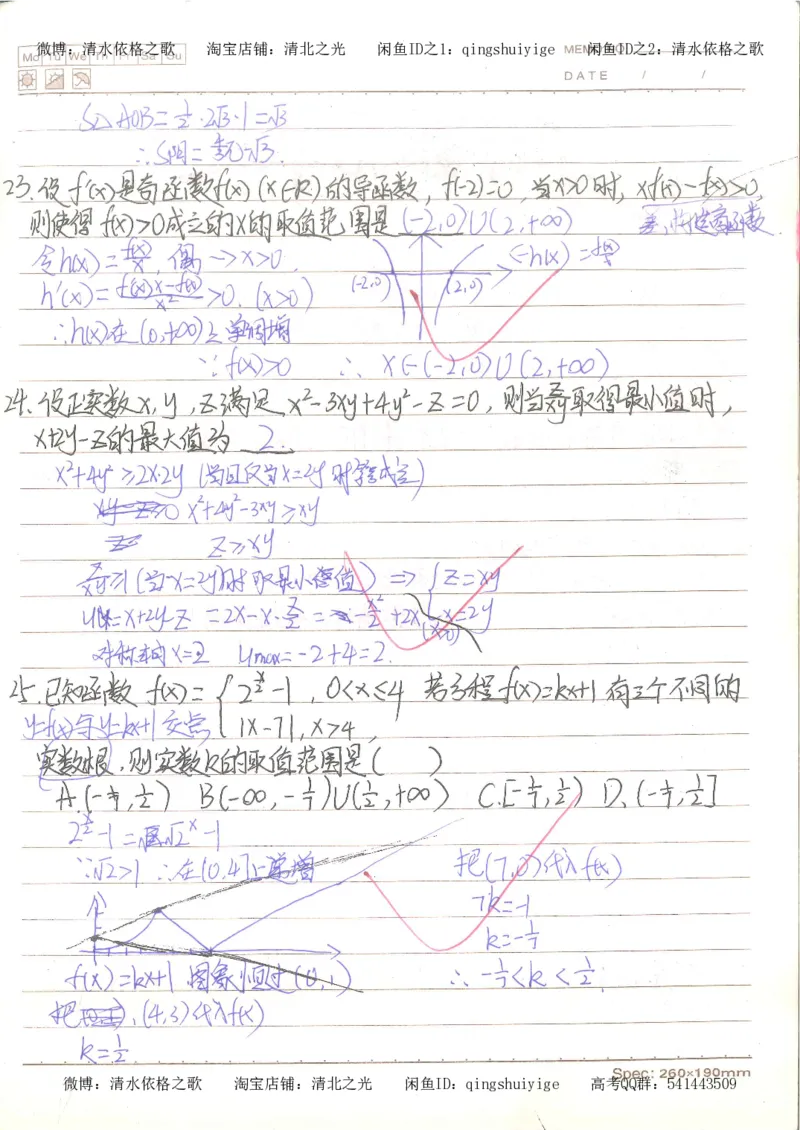 微博：清水依格之歌 淘宝店铺：清北之光 闲鱼ID之1：qingshuiyige 闲鱼ID之2：清水依格之歌
Mo Tu We Th Fr Sa Su
DATE / /
S△AOB=½·2√3·1=√3
23.设f'(x)是奇函数f(x)(x∈R)的导函数,f(-2)=0,当x>0时,xf'(x)-f(x)>0,
则使得f(x)>0成立的x的取值范围是(-2,0)∪(2,+∞)
令h(x)=f(x)/x,偶→x>0
←h(x)=f(x)/x
h'(x)=(f'(x)x-f(x))/x²>0.(x>0)
(-2,0) (2,0)
∴h(x)在(0,+∞)上单调增
∵f(x)>0 ∴x∈(-2,0)∪(2,+∞)
24.设正实数x,y,z满足x²-3xy+4y²-z=0,则当z/xy取得最小值时,
x+2y-z的最大值为 2.
x²+4y²≥2x·2y(当且仅当x=2y时等成立)
x²+4y²-3xy≥xy
z≥xy
z/xy≥1(当x=2y时取最小值)⇒{z=xy
x=2y
(x>0)
=x+2y-z=2x-x·x/2=-x²/2+2x
对称轴x=2 ymax=-2+4=2.
25.已知函数f(x)={2^(x/2)-1,0<x≤4 若方程f(x)=kx+1有三个不同的
y=f(x)与y=kx+1交点 |x-7|,x>4,
实数根,则实数k的取值范围是( )
A.(-1/7,1/2) B(-∞,-1/7)∪(1/2,+∞) C.[-1/7,1/2) D.(-1/7,1/2]
2^(x/2)-1=√2^x-1
∵√2>1 ∴在(0,4]上递增
把(7,0)代入f(x)
7k=-1
k=-1/7
f(x)=kx+1图象恒过(0,1)
∴-1/7<k<1/2
把(4,3)代入f(x)
k=1/2
Spec: 260×190mm
微博：清水依格之歌 淘宝店铺：清北之光 闲鱼ID：qingshuiyige 高考QQ群：541443509